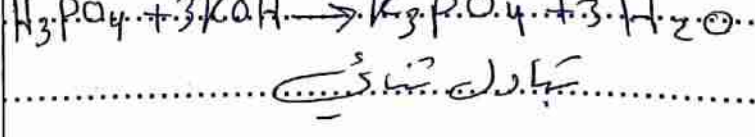 H3PO4 + 3KOH → K3PO4 + 3H2O
تبادل ثنائي